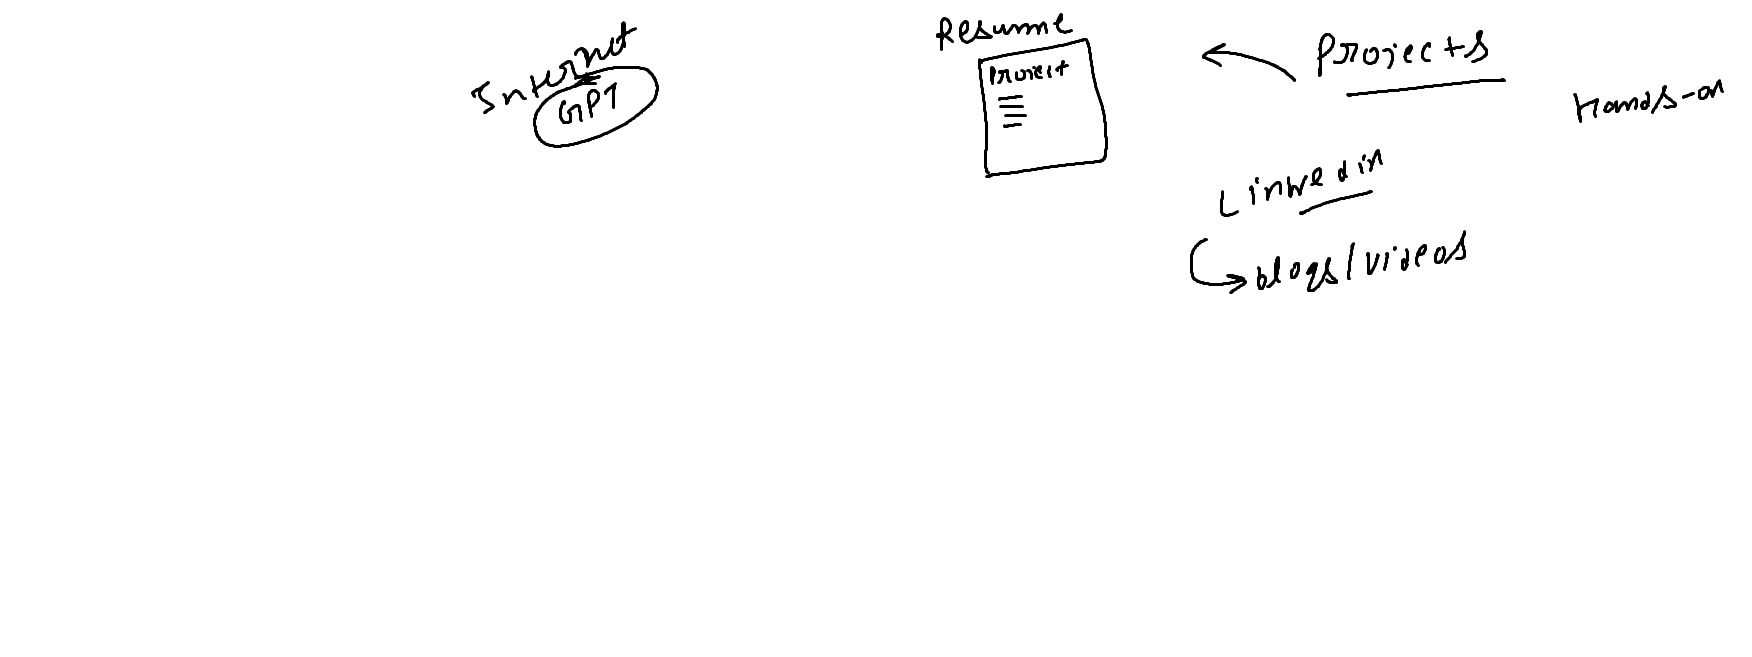 Internet
GPT
Resume
Project
Projects
Hands-on
Linkedin
blogs/videos